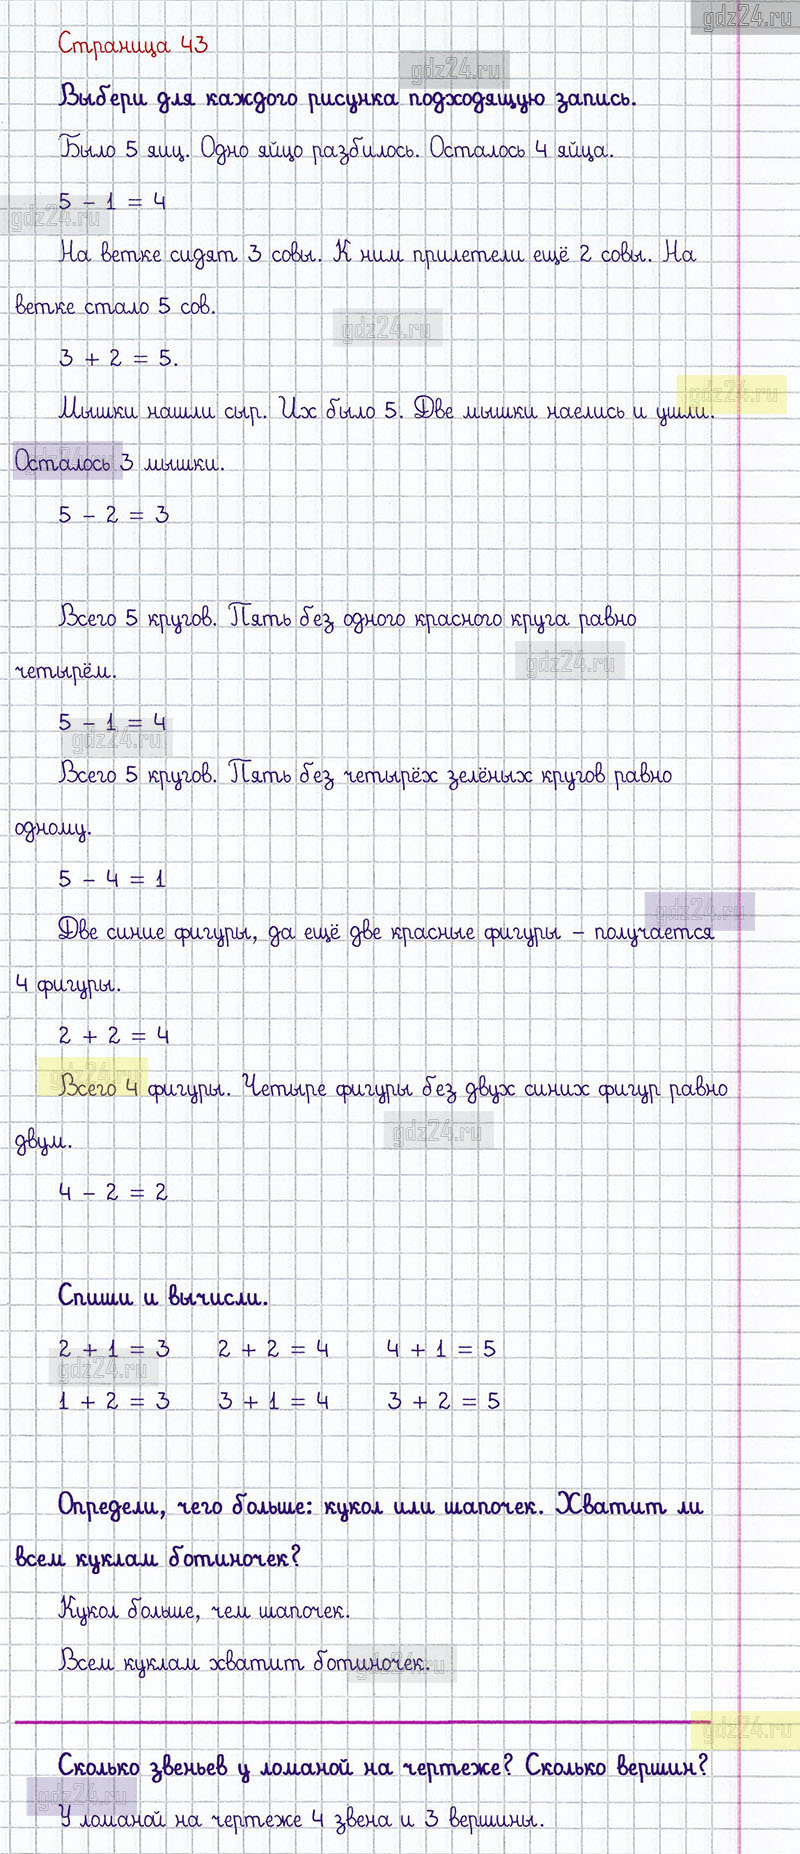 gdz24.ru
Страница 43
gdz24.ru
Выбери для каждого рисунка подходящую запись.
Было 5 яиц. Одно яйцо разбилось. Осталось 4 яйца.
5 - 1 = 4
gdz24.ru
На ветке сидят 3 совы. К ним прилетели ещё 2 совы. На
ветке стало 5 сов.
gdz24.ru
3 + 2 = 5.
gdz24.ru
Мышки нашли сыр. Их было 5. Две мышки наелись и ушли.
Осталось 3 мышки.
gdz24.ru
5 - 2 = 3
Всего 5 кругов. Пять без одного красного круга равно
четырём.
gdz24.ru
5 - 1 = 4
gdz24.ru
Всего 5 кругов. Пять без четырёх зелёных кругов равно
одному.
5 - 4 = 1
gdz24.ru
Две синие фигуры, да ещё две красные фигуры - получается
4 фигуры.
2 + 2 = 4
gdz24.ru
Всего 4 фигуры. Четыре фигуры без двух синих фигур равно
двум.
gdz24.ru
4 - 2 = 2
Спиши и вычисли.
2 + 1 = 3 2 + 2 = 4 4 + 1 = 5
gdz24.ru
1 + 2 = 3 3 + 1 = 4 3 + 2 = 5
Определи, чего больше: кукол или шапочек. Хватит ли
всем куклам ботиночек?
Кукол больше, чем шапочек.
Всем куклам хватит ботиночек.
gdz24.ru
gdz24.ru
Сколько звеньев у ломаной на чертеже? Сколько вершин?
gdz24.ru
У ломаной на чертеже 4 звена и 3 вершины.